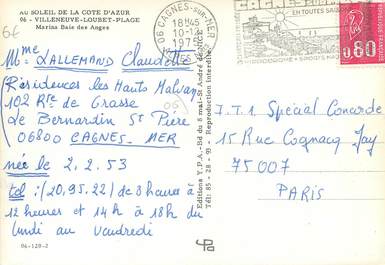 6€
AU SOLEIL DE LA COTE D'AZUR
06 - VILLENEUVE-LOUBET-PLAGE
Marina Baie des Anges
Mme LALLEMAND Claudette
Résidences les Hauts Malvan
102 Rte de Grasse
Le Bernardin St Pière
06800 CAGNES-MER
née le 2.2.53
tel : (20.95.22) de 8 heures à
12 heures et 14 h à 18h du
lundi au vendredi
06-128-2
06
Editions Y.P.A. - Bd du 8 mai - St André de NICE
Tél: 85-28-93 - Reproduction interdite
06 CAGNES-sur-MER
18H45
10-12
EN TOUTES SAISONS
0,80
J.T.1 Spécial Concorde
15 Rue Cognacq Jay
75007
PARIS